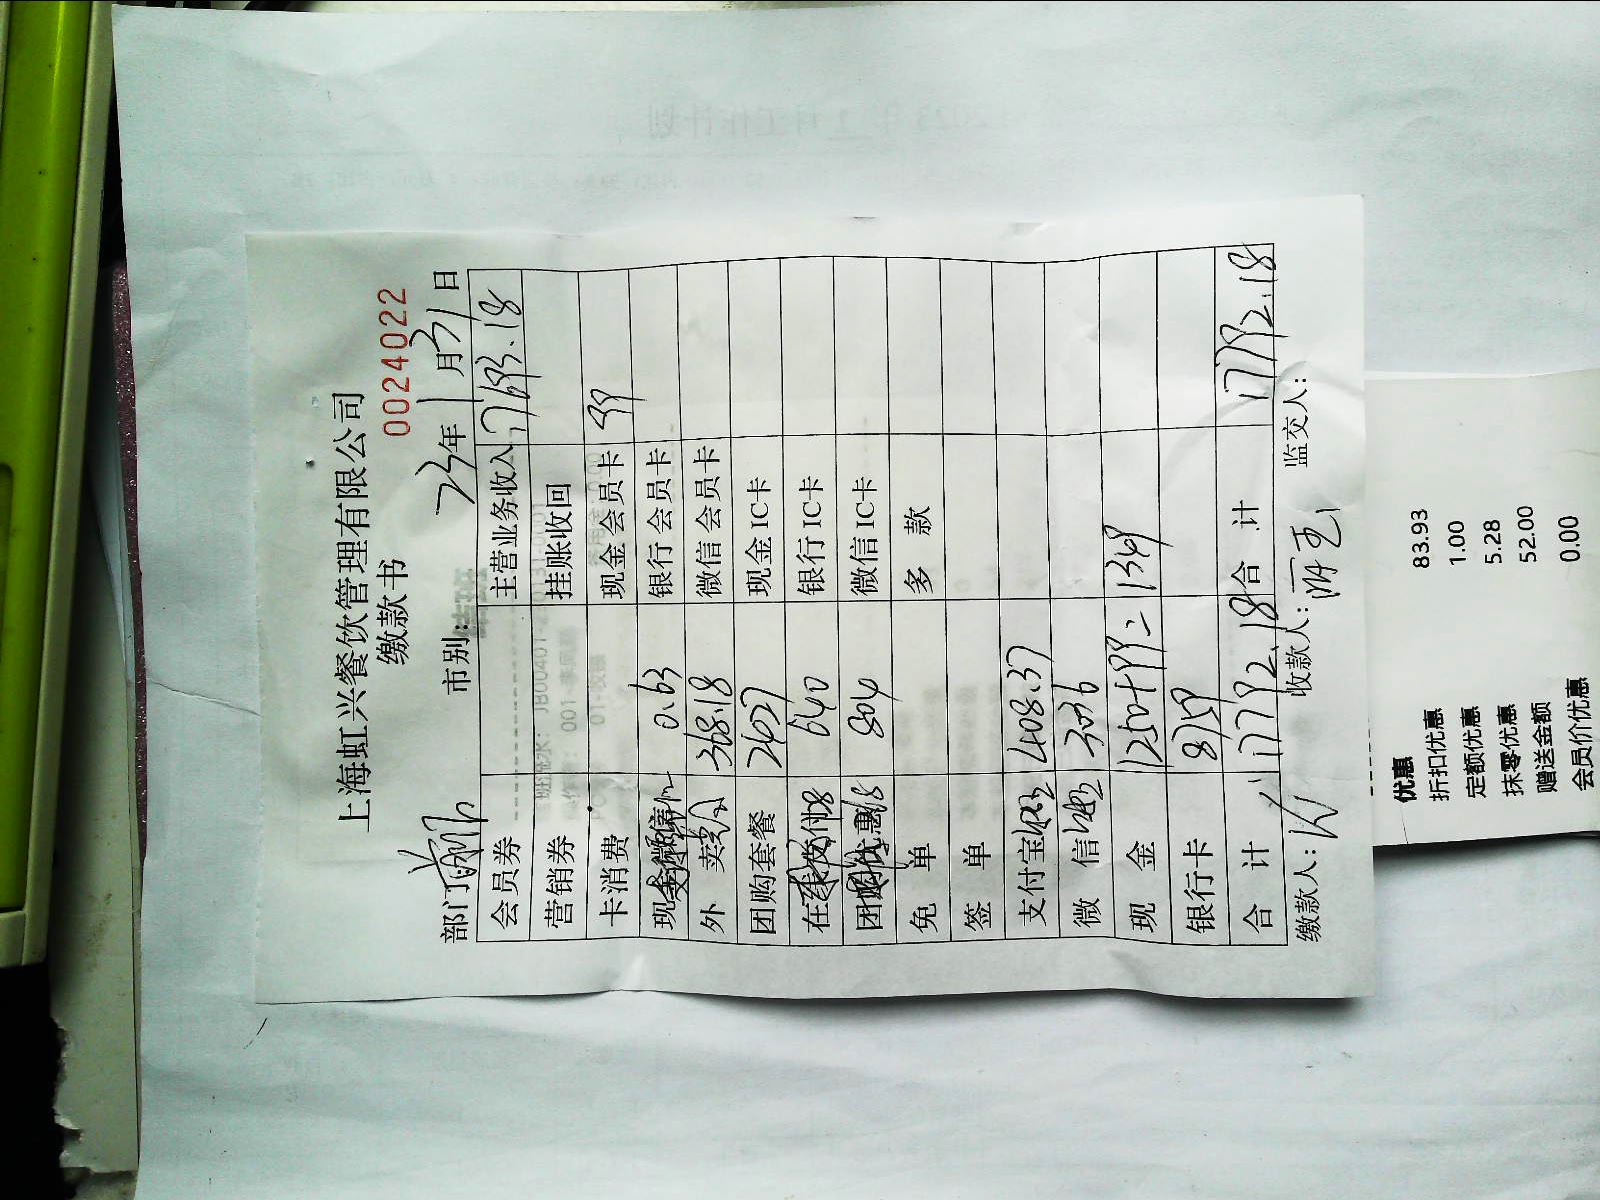 上海虹兴餐饮管理有限公司
缴款书
0024022
部门: 市别: 23年1月31日
会员券 主营业务收入 17693.18
营销券 挂账收回
卡消费 现金会员卡 99
0.63 银行会员卡
外卖 368.18 微信会员卡
团购套餐 2427 现金IC卡
640 银行IC卡
804 微信IC卡
免单 多款
签单
支付宝 408.37
微信 3036
现金 1250+99=1349
银行卡 8759
合计 17792.18 合计 17792.18
缴款人: 收款人: 监交人:
优惠
折扣优惠 83.93
定额优惠 1.00
抹零优惠 5.28
赠送金额 52.00
会员价优惠 0.00